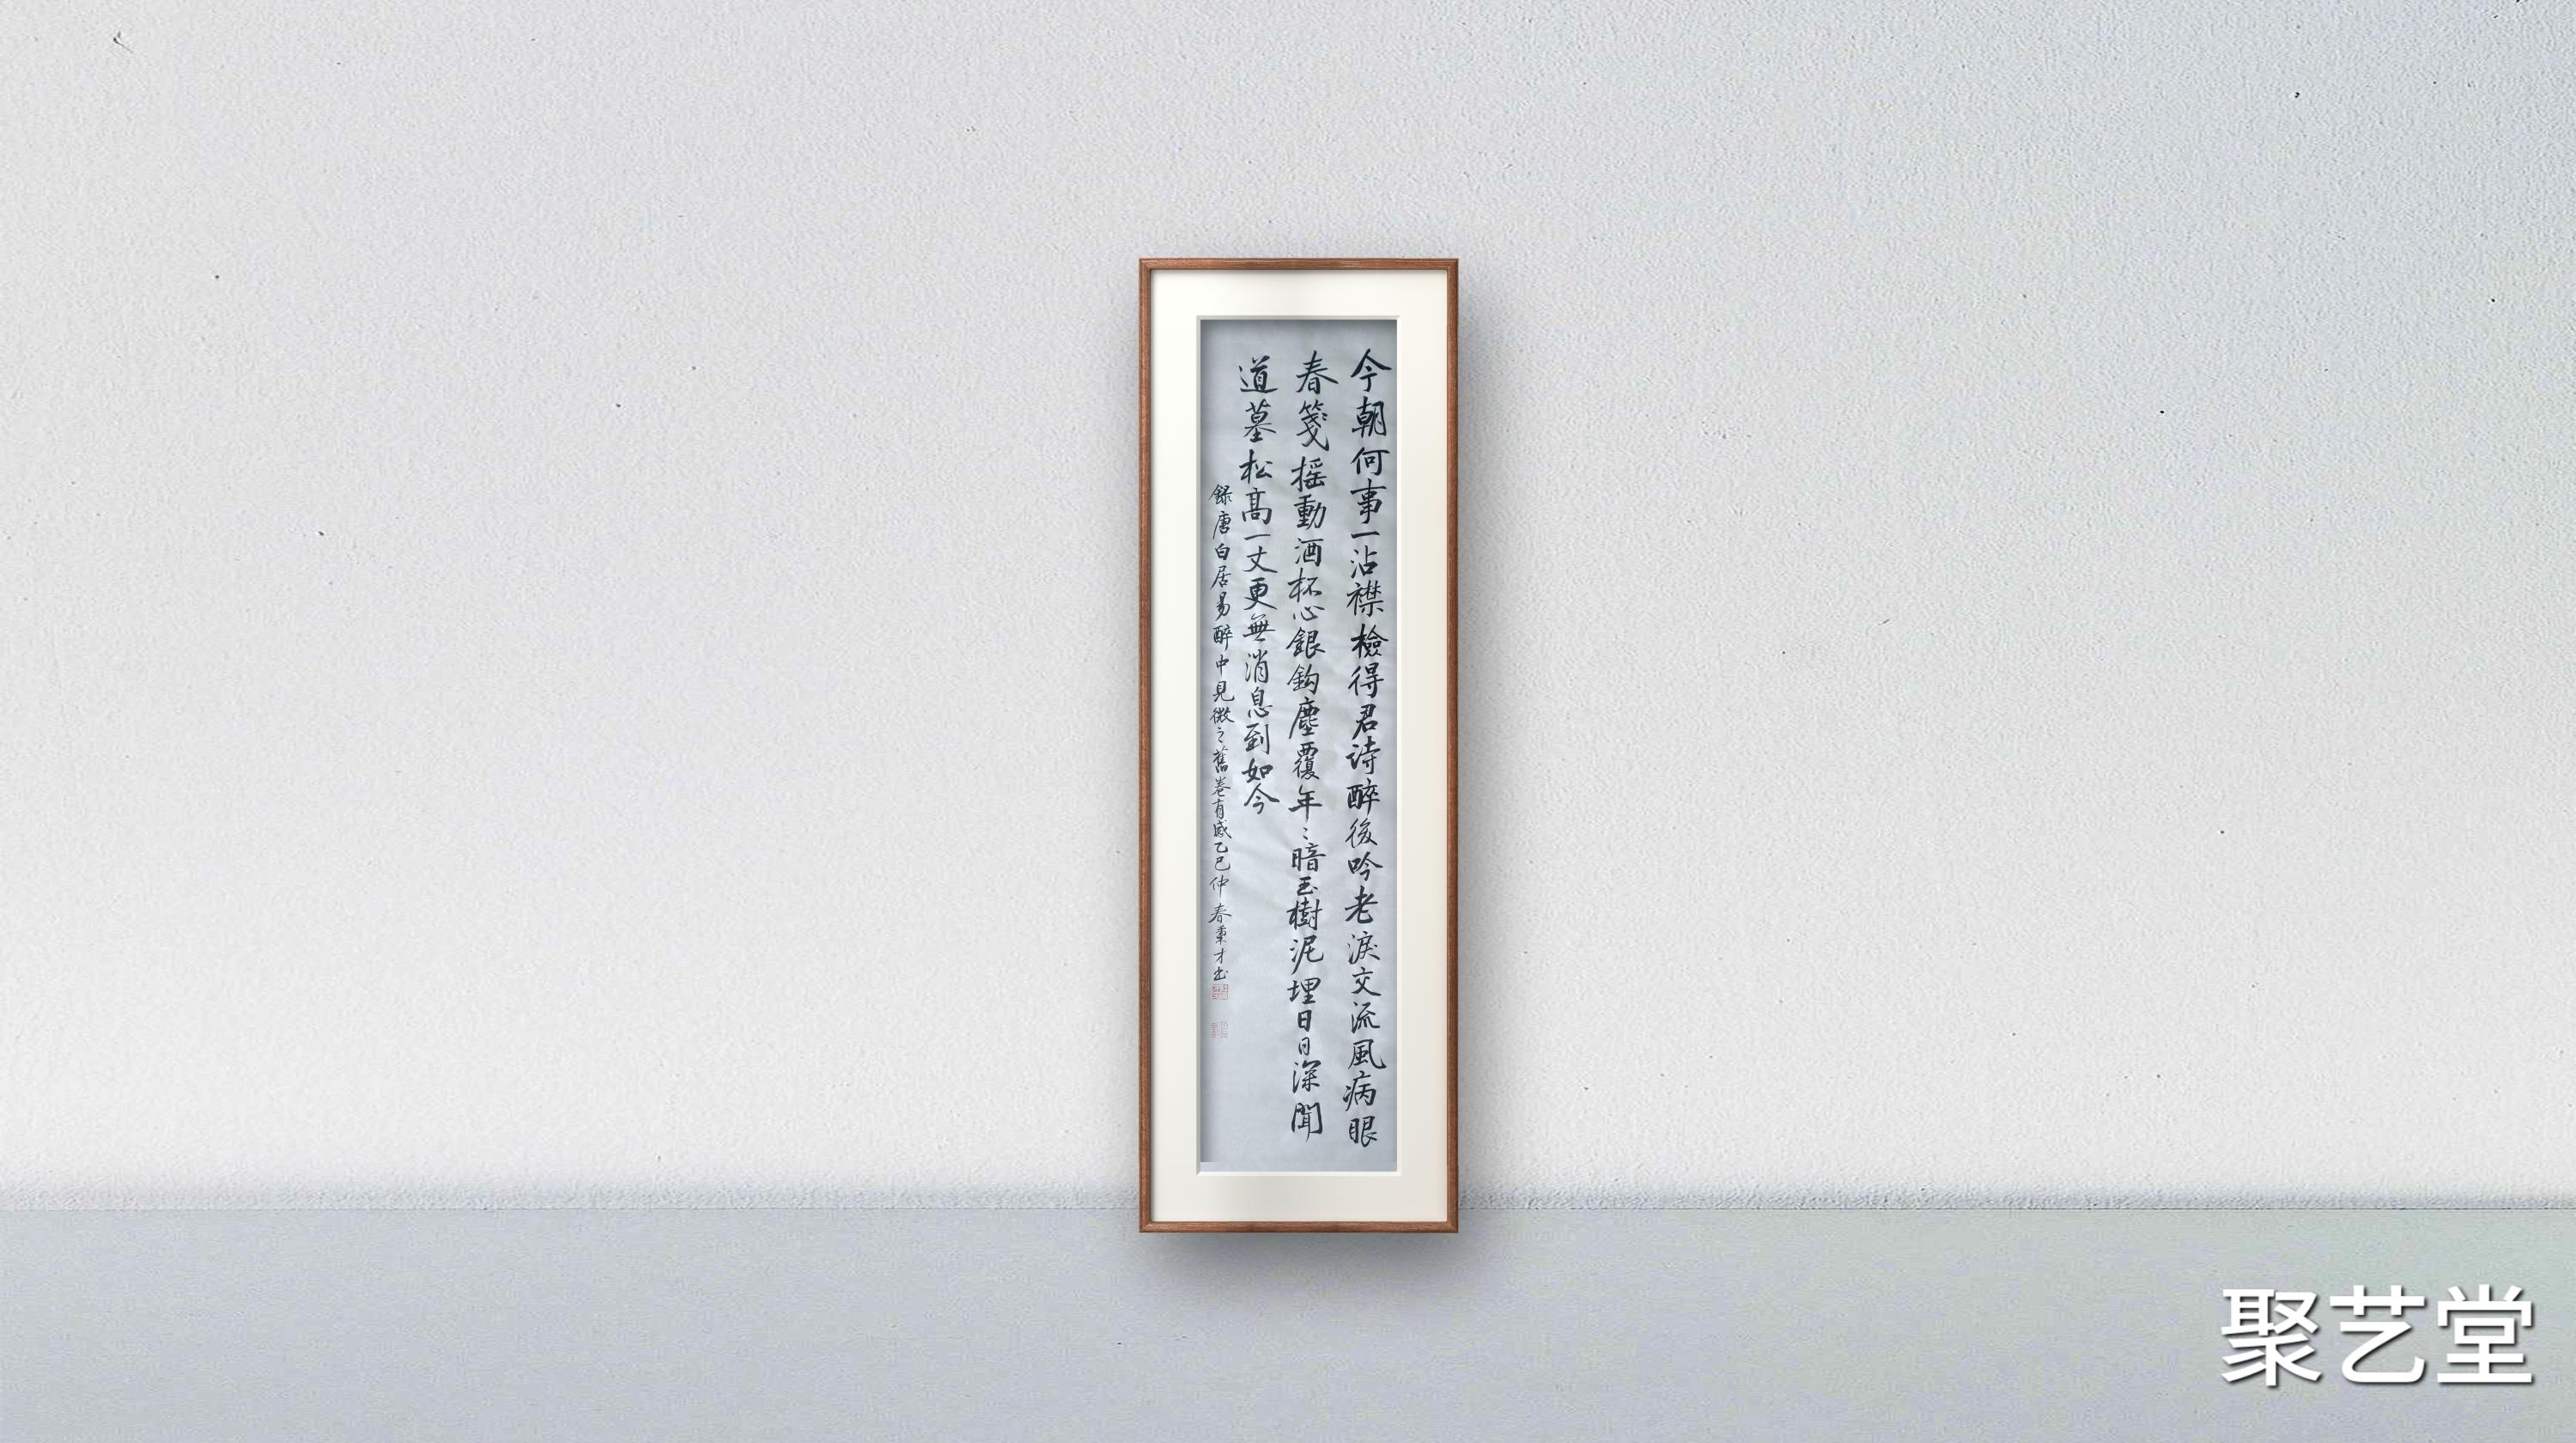 今朝何事一沾襟檢得君詩醉後吟老淚交流風病眼
春箋摇動酒杯心銀鈎塵覆年〻暗玉樹泥埋日日深聞
道墓松高一丈更無消息到如今
録唐白居易醉中見微之舊卷有感乙巳仲春秉才书
聚艺堂